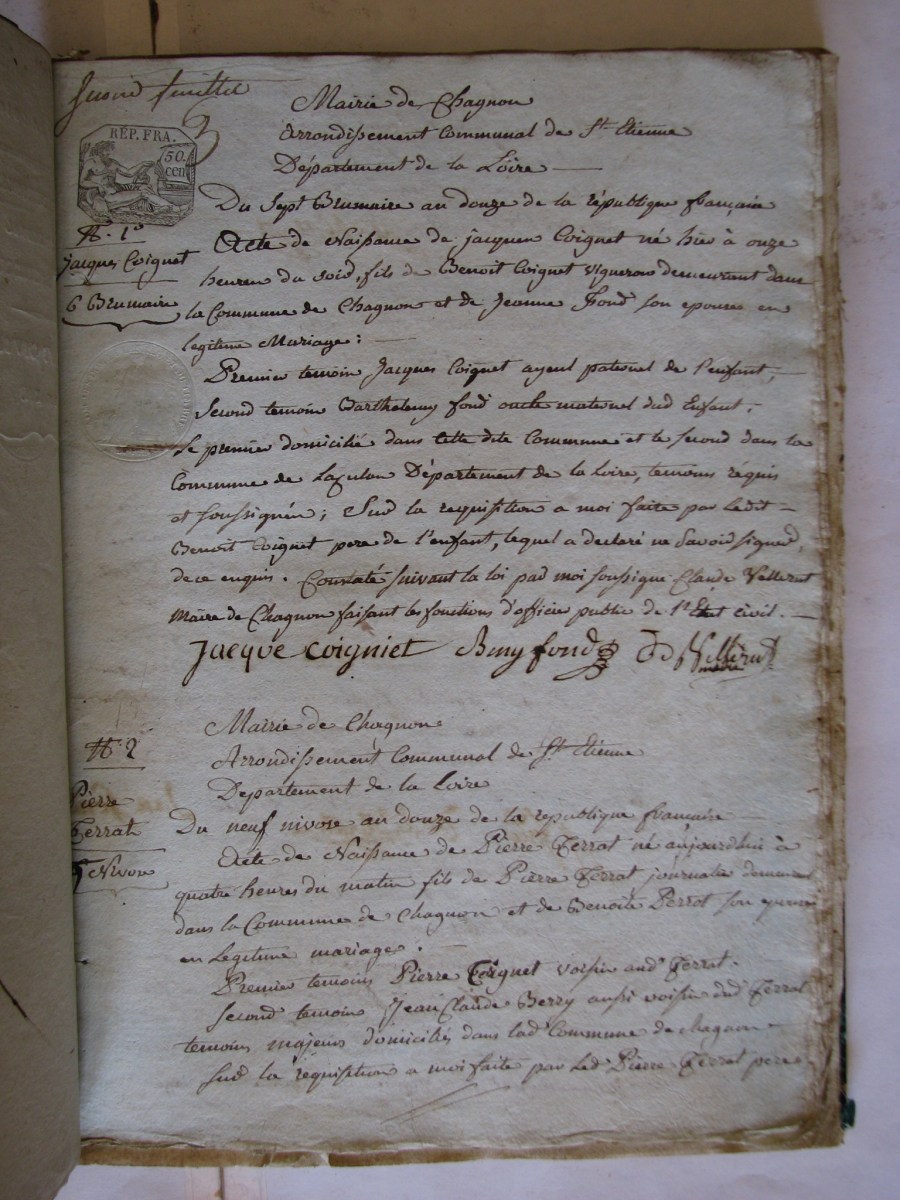 Second feuillet
3
RÉP. FRA.
50.
cen
Mairie de Chagnon
Arrondissement Communal de St. Etienne
Département de la Loire
Du Sept Brumaire an douze de la république française
N. 1er
Jacques Coignet
6 Brumaire
Acte de Naissance de jacques Coignet né hier à onze
heures du soir, fils de Benoit Coignet vigneron demeurant dans
la Commune de Chagnon et de Jeanne Fond son epouse en
legitime Mariage :
Premier temoin Jacques Coignet ayeul paternel de l'enfant ;
Second temoin Barthelemy fond oncle maternel dud Enfant ;
le premier domicilié dans Cette dite Commune et le second dans la
Commune de Département de la Loire, temoins réquis
et soussignés ; Sur la requisition a moi faite par ledit
Benoit Coignet pere de l'enfant, lequel a declaré ne savoir signer,
de ce enquis. Constaté suivant la loi par moi soussigné Claude Vellerut
Maire de Chagnon faisant les fonctions d'officier public de l'Etat civil.
Jacque coigniet Bmy fond Vellerut
maire
Mairie de Chagnon
N. 2
Arrondissement Communal de St. Etienne
Departement de la Loire
Pierre
Ferrat
Nivose
Du neuf nivose an douze de la republique française
Acte de Naissance de Pierre Ferrat né aujourdhui à
quatre heures du matin fils de Pierre Ferrat journalier demeurant
dans la Commune de Chagnon et de Benoite Perrot son epouse
en Legitime mariage.
Premier temoins Pierre Coignet voisin aud. Ferrat.
Second temoins Jean Claude Berry aussi voisin dud Ferrat
temoins majeurs domiciliés dans lad. Commune de chagnon
sur la réquisition a moi faite par led. Pierre Ferrat pere